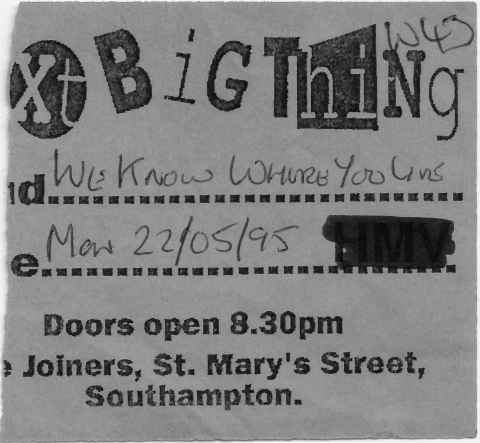 xt BiG ThiNg
nd We Know Where You Live
e Mon 22/05/95 HMV
Doors open 8.30pm
e Joiners, St. Mary's Street,
Southampton.